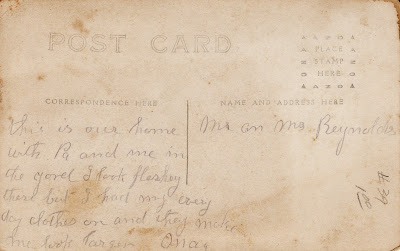 POST CARD
AZO
PLACE
STAMP
HERE
AZO
CORRESPONDENCE HERE
NAME AND ADDRESS HERE
This is our home
with Pa and me in
the I look fleshey
there but I had my every
day clothes on and they make
me look larger
Mr an Mrs Reynolds